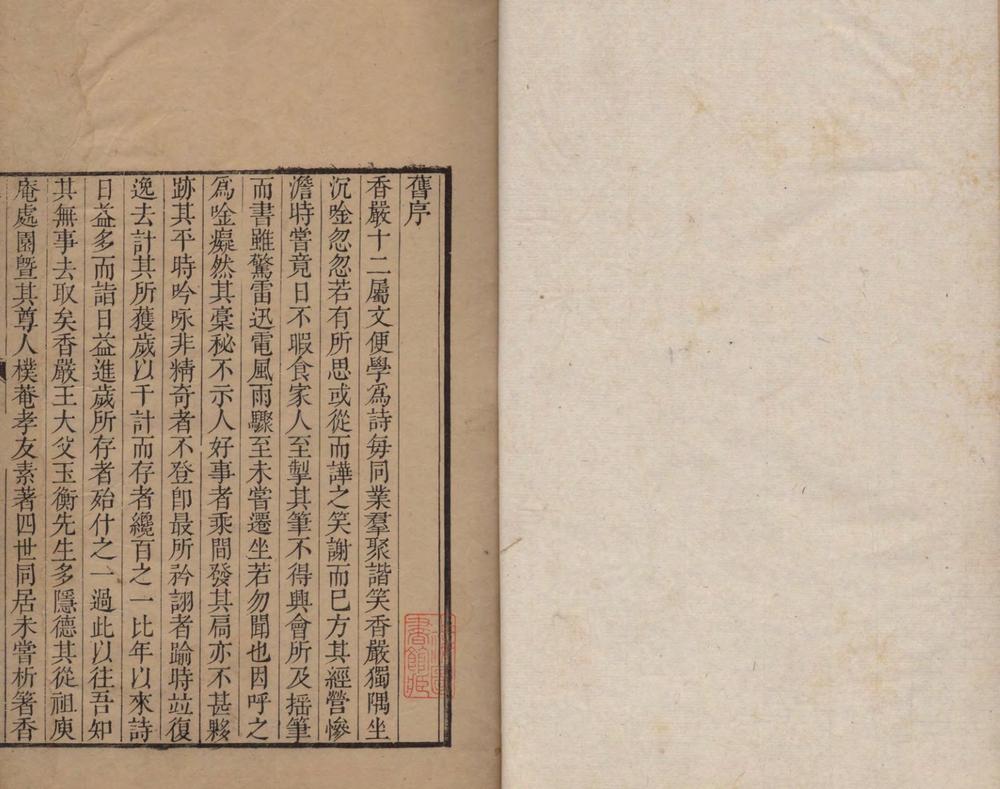 舊序
香嚴十二屬文便學為詩每同業羣聚諧笑香嚴獨隅坐
沉唫忽忽若有所思或從而譁之笑謝而已方其經營慘
澹時嘗竟日不暇食家人至掣其筆不得興會所及揺筆
而書雖驚雷迅電風雨驟至未嘗遷坐若勿聞也因呼之
爲唫癡然其稾秘不示人好事者乘間發其扃亦不甚夥
跡其平時吟咏非精奇者不登卽最所矜詡者踰時竝復
逸去計其所獲歲以千計而存者纔百之一比年以來詩
日益多而詣日益進歲所存者殆什之一過此以往吾知
其無事去取矣香嚴王大父玉衡先生多隱德其從祖庾
庵處園曁其尊人樸菴孝友素著四世同居未嘗析箸香
書館藏